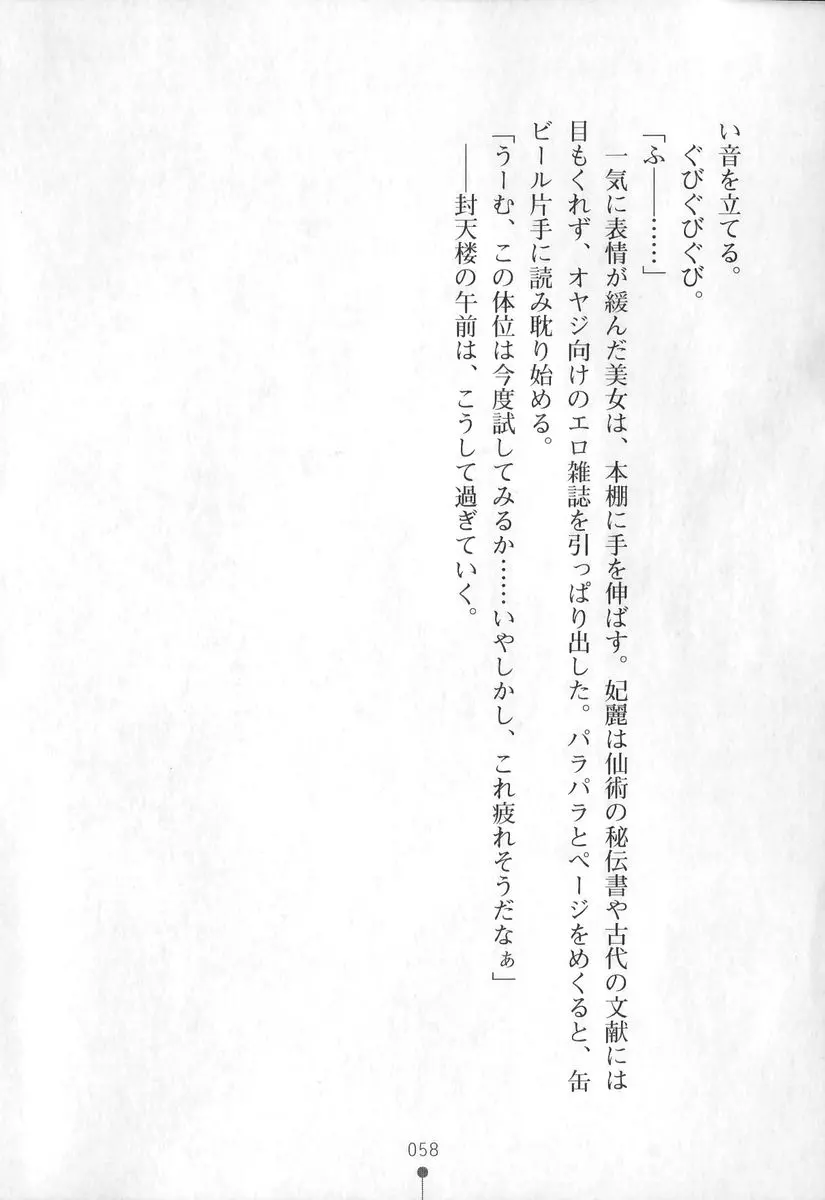 い音を立てる。
　ぐびぐびぐび。
「ふ――……」
　一気に表情が緩んだ美女は、本棚に手を伸ばす。妃麗は仙術の秘伝書や古代の文献には
目もくれず、オヤジ向けのエロ雑誌を引っぱり出した。パラパラとページをめくると、缶
ビール片手に読み耽り始める。
「うーむ、この体位は今度試してみるか……いやしかし、これ疲れそうだなぁ」
　――封天楼の午前は、こうして過ぎていく。
058